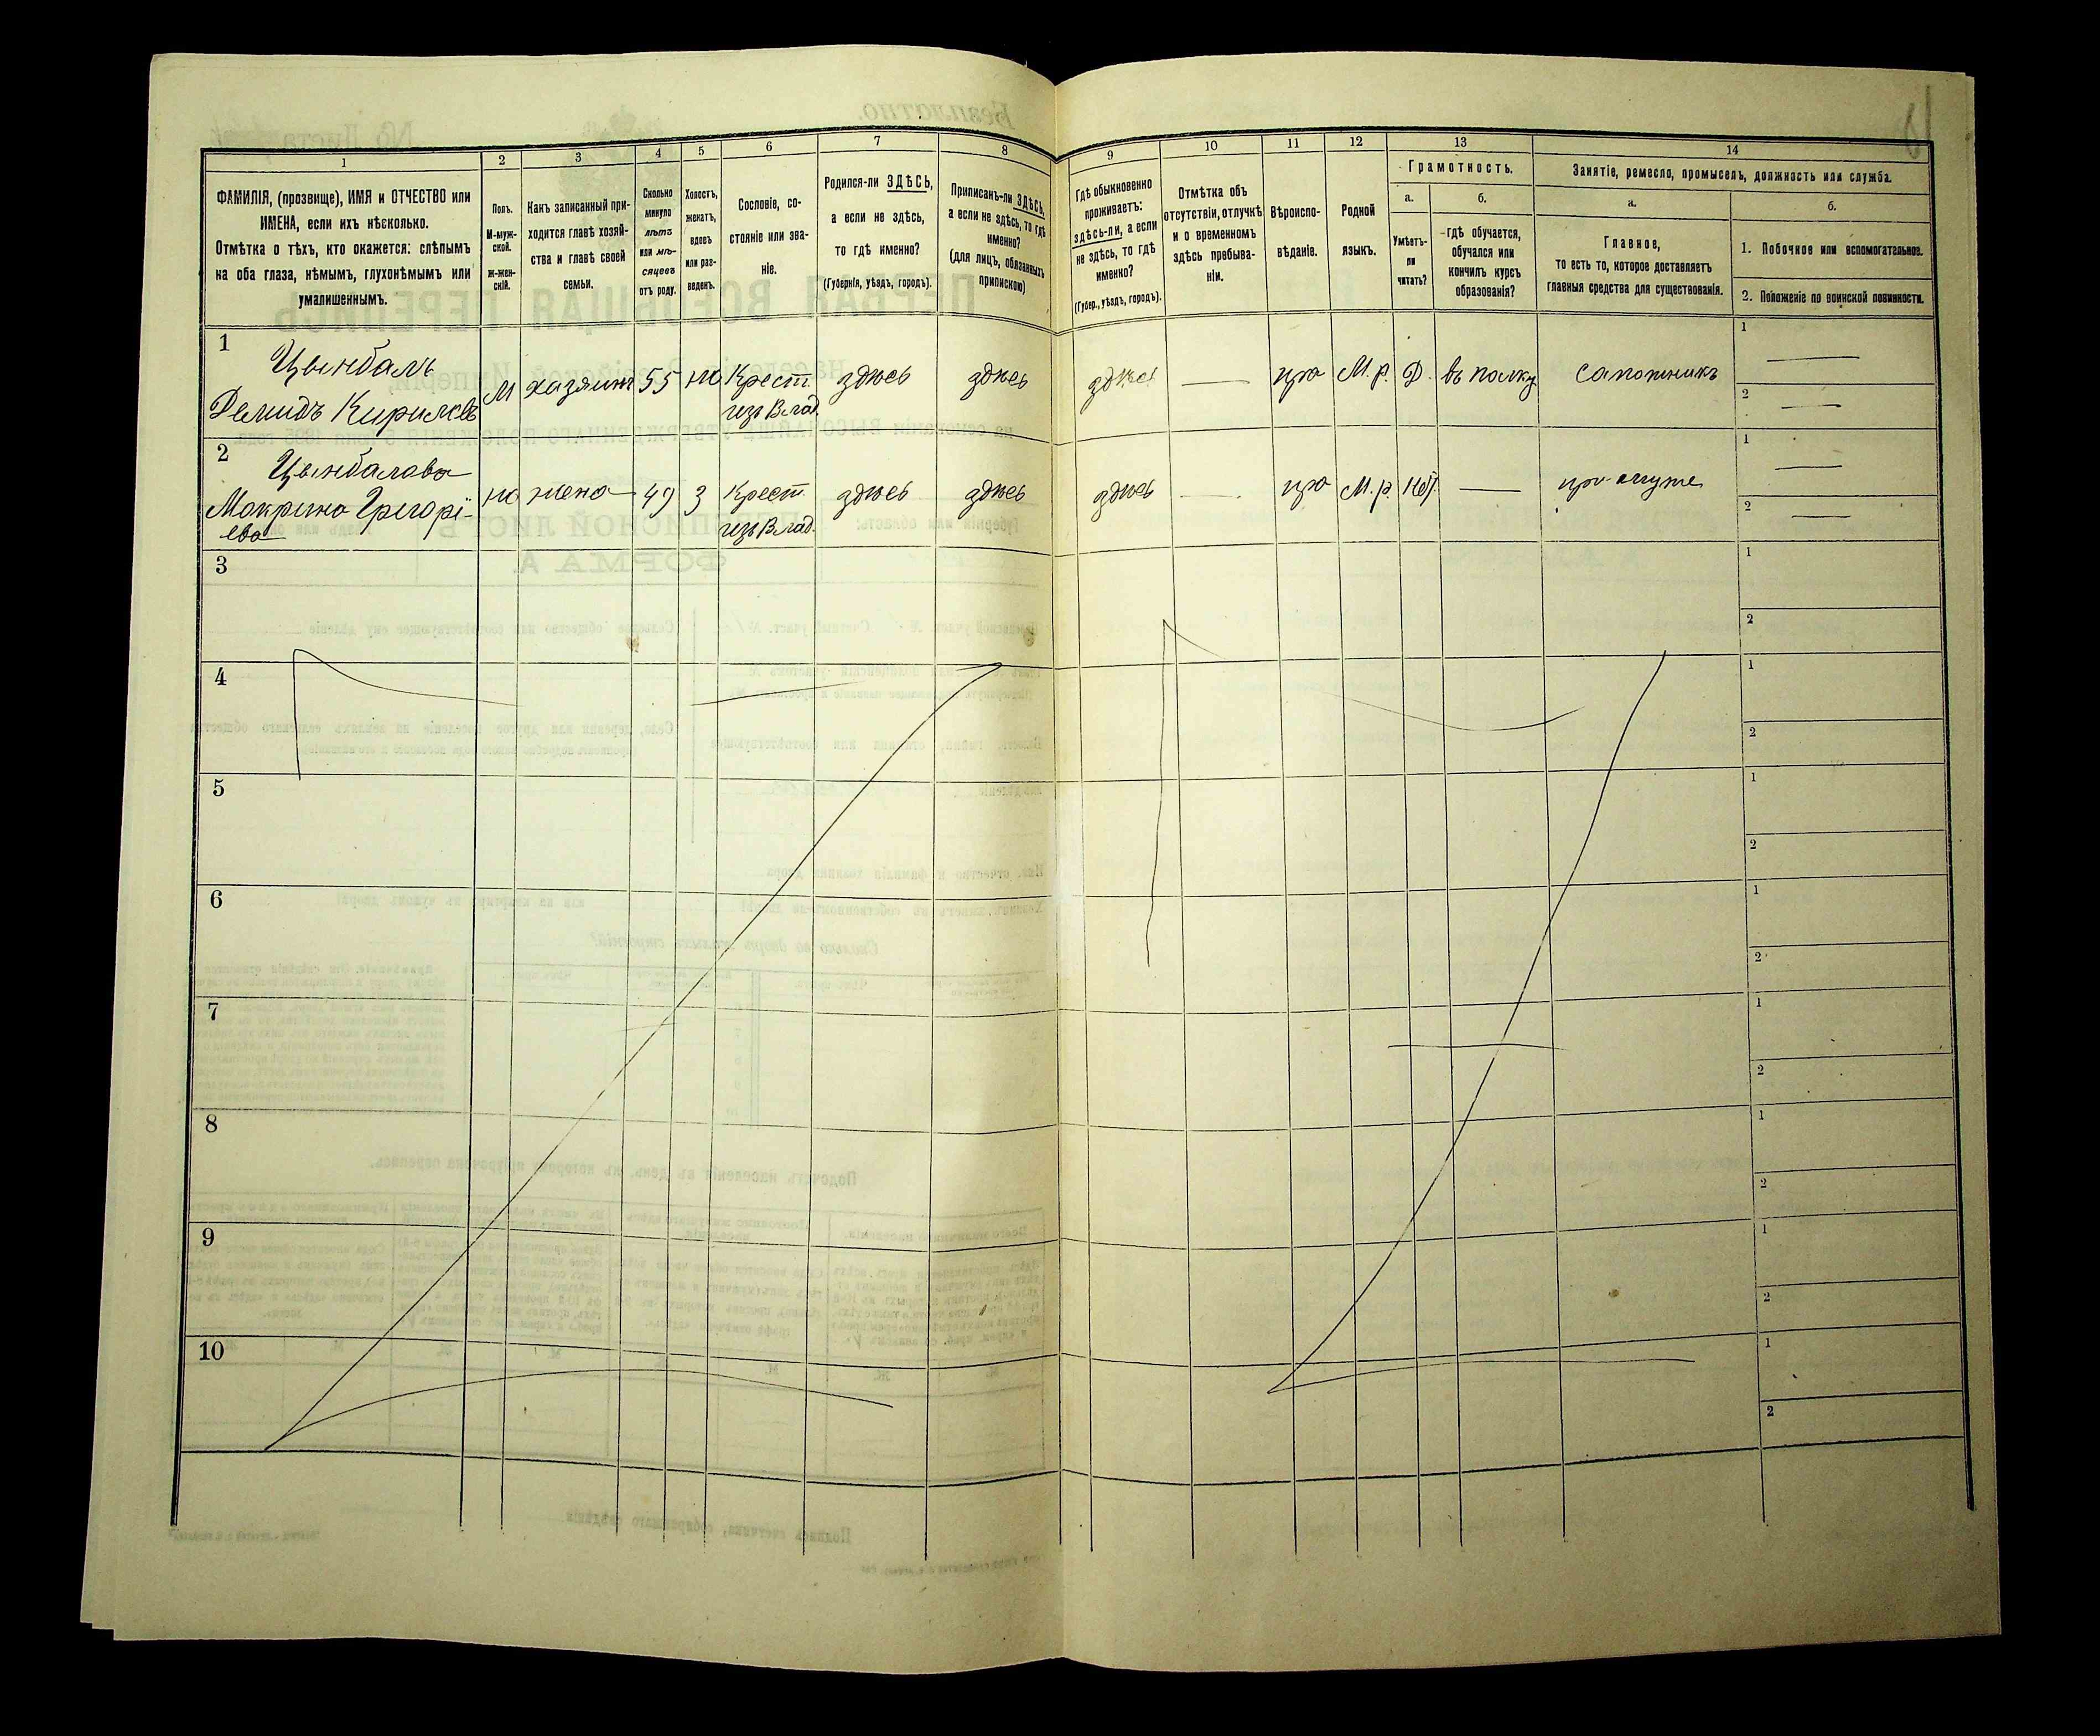 1 2 3 4 5 6 7 8 9 10 11 12 13 14
ФАМИЛІЯ, (прозвище), ИМЯ и ОТЧЕСТВО или
ИМЕНА, если ихъ нѣсколько.
Отмѣтка о тѣхъ, кто окажется: слѣпымъ
на оба глаза, нѣмымъ, глухонѣмымъ или
умалишеннымъ.
Полъ.
М-муж-
ской.
Ж-жен-
скій.
Какъ записанный при-
ходится главѣ хозяй-
ства и главѣ своей
семьи.
Сколько
минуло
лѣтъ
или мѣ-
сяцевъ
отъ роду.
Холостъ,
женатъ,
вдовъ
или раз-
веденъ.
Сословіе, со-
стояніе или зва-
ніе.
Родился-ли ЗДѢСЬ,
а если не здѣсь,
то гдѣ именно?
(Губернія, уѣздъ, городъ).
Приписанъ-ли ЗДѢСЬ,
а если не здѣсь, то гдѣ
именно?
(для лицъ, обязанныхъ
припискою)
Гдѣ обыкновенно
проживаетъ:
здѣсь-ли, а если
не здѣсь, то гдѣ
именно?
(Губер., уѣздъ, городъ).
Отмѣтка объ
отсутствіи, отлучкѣ
и о временномъ
здѣсь пребыва-
ніи.
Вѣроиспо-
вѣданіе.
Родной
языкъ.
Грамотность.
а.
Умѣетъ-
ли
читать?
б.
Гдѣ обучается,
обучался или
кончилъ курсъ
образованія?
Занятіе, ремесло, промыселъ, должность или служба.
а.
Главное,
то есть то, которое доставляетъ
главныя средства для существованія.
б.
1. Побочное или вспомогательное.
2. Положеніе по воинской повинности.
1 Цымбалъ
Демидъ Кириловъ М хазяинъ 55 ж Крест. здѣсь здѣсь здѣсь — пра М. р. Д. въ полку сапожникъ 1 —
изъ Влад. 2 —
2 Цымбалова
Макрина Грегорі- ж жена 49 З Крест. здѣсь здѣсь здѣсь — пра М. р. нѣт — при муже 1 —
ева изъ Влад. 2 —
3 1
2
4 1
2
5 1
2
6 1
2
7 1
2
8 1
2
9 1
2
10 1
2